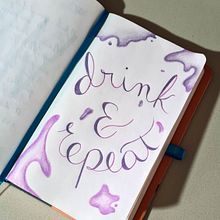 drink
&
repeat